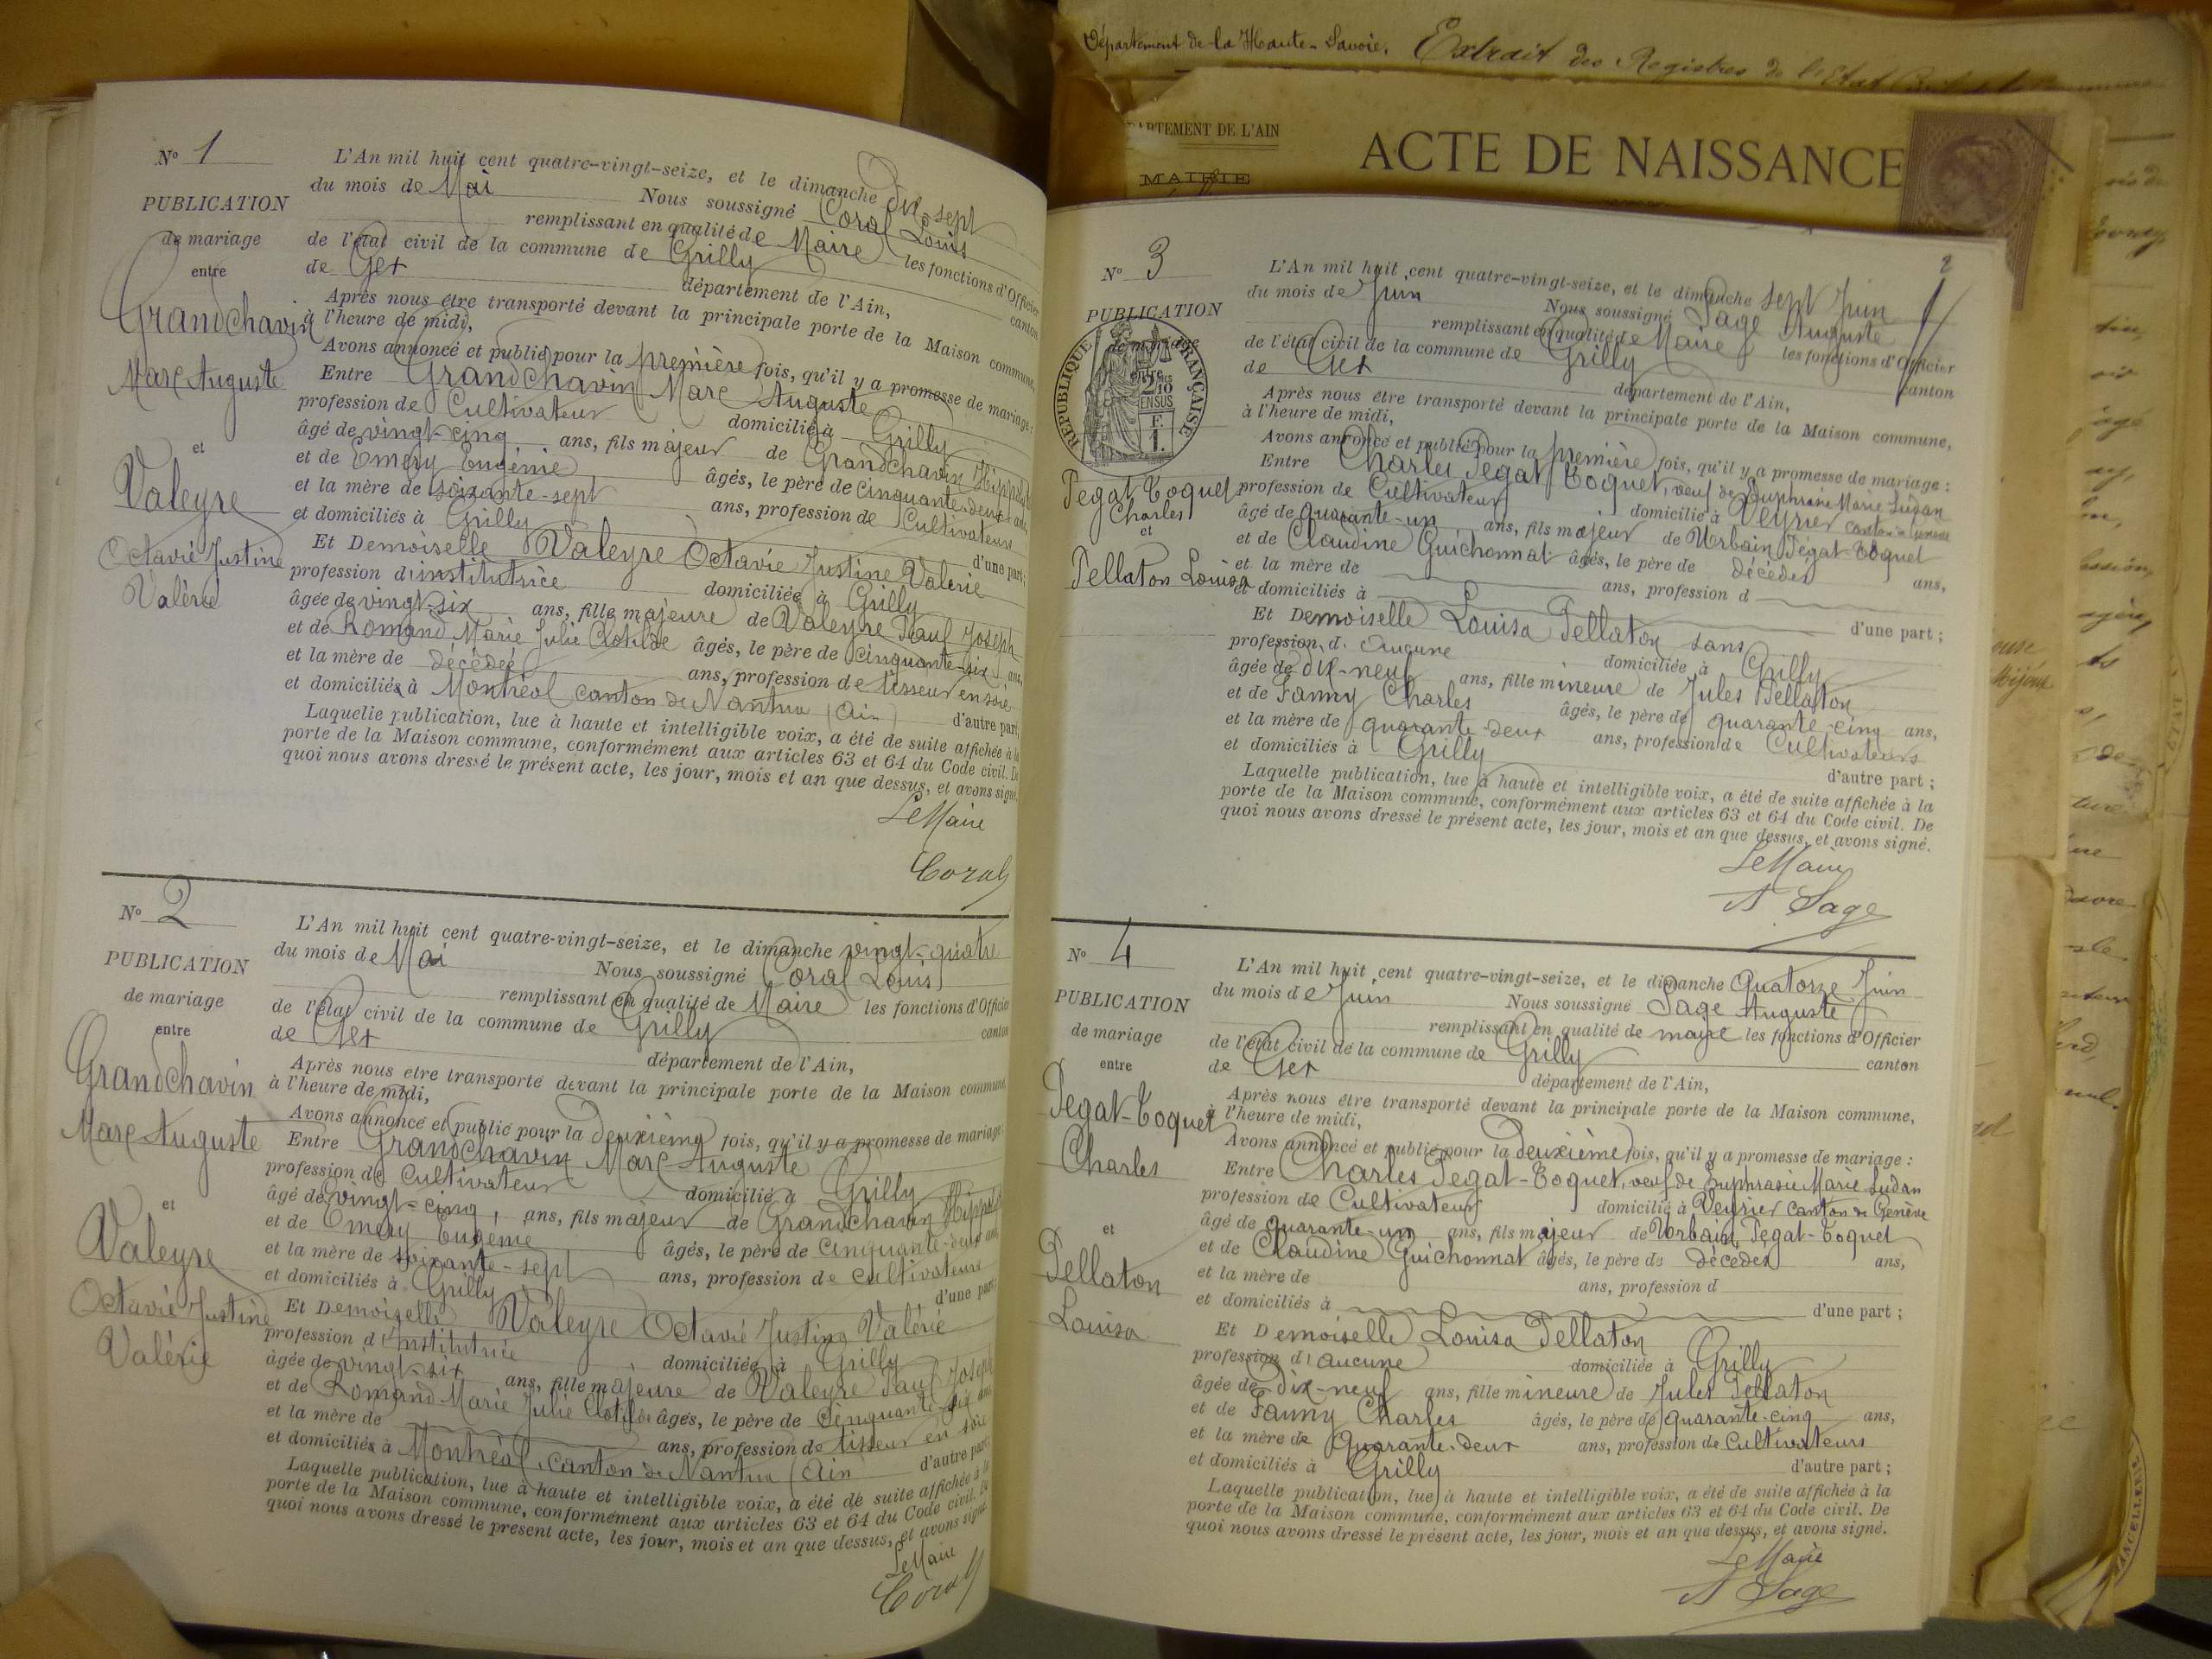 Nº 1
PUBLICATION
de mariage
entre
Grandchavin
Marc Auguste
et
Valeyre
Octavie Justine
Valérie
L'An mil huit cent quatre-vingt-seize, et le dimanche dix-sept
du mois de Mai Nous soussigné Coral Louis
remplissant en qualité de Maire les fonctions d'Officier
de l'état civil de la commune de Grilly canton
de Gex département de l'Ain,
Après nous être transporté devant la principale porte de la Maison commune,
à l'heure de midi,
Avons annoncé et publié pour la première fois, qu'il y a promesse de mariage :
Entre Grandchavin Marc Auguste
profession de Cultivateur domicilié à Grilly
âgé de vingt-cinq ans, fils majeur de Grandchavin
et de Emery Eugénie âgés, le père de cinquante-deux ans,
et la mère de soixante-sept ans, profession de Cultivateurs
et domiciliés à Grilly d'une part;
Et Demoiselle Valeyre Octavie Justine Valérie
profession d'institutrice domiciliée à Grilly
âgée de vingt-six ans, fille majeure de Valeyre Paul Joseph
et de Romand Marie Julie Clotilde âgés, le père de cinquante-six ans,
et la mère de décédée ans, profession de tisseur en soie
et domiciliés à Montréal canton de Nantua (Ain) d'autre part
Laquelle publication, lue à haute et intelligible voix, a été de suite affichée à la
porte de la Maison commune, conformément aux articles 63 et 64 du Code civil. De
quoi nous avons dressé le présent acte, les jour, mois et an que dessus, et avons signé.
Le Maire
Coral
Nº 2
PUBLICATION
de mariage
entre
Grandchavin
Marc Auguste
et
Valeyre
Octavie Justine
Valérie
L'An mil huit cent quatre-vingt-seize, et le dimanche vingt-quatre
du mois de Mai Nous soussigné Coral Louis
remplissant en qualité de Maire les fonctions d'Officier
de l'état civil de la commune de Grilly canton
de Gex département de l'Ain,
Après nous être transporté devant la principale porte de la Maison commune,
à l'heure de midi,
Avons annoncé et publié pour la deuxième fois, qu'il y a promesse de mariage :
Entre Grandchavin Marc Auguste
profession de Cultivateur domicilié à Grilly
âgé de vingt-cinq, ans, fils majeur de Grandchavin
et de Emery Eugénie âgés, le père de cinquante-deux ans,
et la mère de soixante-sept ans, profession de cultivateurs
et domiciliés à Grilly d'une part;
Et Demoiselle Valeyre Octavie Justine Valérie
profession d'institutrice domiciliée à Grilly
âgée de vingt-six ans, fille majeure de Valeyre Paul Joseph
et de Romand Marie Julie Clotilde âgés, le père de cinquante-six ans,
et la mère de ans, profession de tisseur en soie
et domiciliés à Montréal, canton de Nantua (Ain d'autre part
Laquelle publication, lue à haute et intelligible voix, a été de suite affichée à la
porte de la Maison commune, conformément aux articles 63 et 64 du Code civil. De
quoi nous avons dressé le présent acte, les jour, mois et an que dessus, et avons signé.
Le Maire
Coral
Département de la Haute-Savoie. Extrait des Registres de l'Etat
DÉPARTEMENT DE L'AIN
MAIRIE
ACTE DE NAISSANCE
2
Nº 3
PUBLICATION
de mariage
entre
RÉPUBLIQUE FRANÇAISE
2/10
EN SUS
F.
1.
Pegat-Toquet
Charles
et
Pellaton Louisa
L'An mil huit cent quatre-vingt-seize, et le dimanche sept Juin
du mois de Juin Nous soussigné Sage Auguste
remplissant en qualité de Maire les fonctions d'Officier
de l'état civil de la commune de Grilly canton
de Gex département de l'Ain,
Après nous être transporté devant la principale porte de la Maison commune,
à l'heure de midi,
Avons annoncé et publié pour la première fois, qu'il y a promesse de mariage :
Entre Charles Pegat-Toquet, veuf de Euphrasie Marie Ludan
profession de Cultivateur domicilié à Veyrier canton de Genève
âgé de quarante-un ans, fils majeur de Urbain Pégat-Toquet
et de Claudine Guichonnat âgés, le père de décédés ans,
et la mère de ans, profession d
et domiciliés à d'une part ;
Et Demoiselle Louisa Pellaton sans
profession d. aucune domiciliée à Grilly
âgée de dix-neuf ans, fille mineure de Jules Pellaton
et de Fanny Charles âgés, le père de quarante-cinq ans,
et la mère de quarante-deux ans, profession de Cultivateurs
et domiciliés à Grilly d'autre part ;
Laquelle publication, lue à haute et intelligible voix, a été de suite affichée à la
porte de la Maison commune, conformément aux articles 63 et 64 du Code civil. De
quoi nous avons dressé le présent acte, les jour, mois et an que dessus, et avons signé.
Le Maire
A Sage
Nº 4
PUBLICATION
de mariage
entre
Pegat-Toquet
Charles
et
Pellaton
Louisa
L'An mil huit cent quatre-vingt-seize, et le dimanche Quatorze Juin
du mois de Juin Nous soussigné Sage Auguste
remplissant en qualité de maire les fonctions d'Officier
de l'état civil de la commune de Grilly canton
de Gex département de l'Ain,
Après nous être transporté devant la principale porte de la Maison commune,
à l'heure de midi,
Avons annoncé et publié pour la deuxième fois, qu'il y a promesse de mariage :
Entre Charles Pegat-Toquet, veuf de Euphrasie Marie Ludan
profession de Cultivateur domicilié à Veyrier canton de Genève
âgé de quarante-un ans, fils majeur de Urbain Pegat-Toquet
et de Claudine Guichonnat âgés, le père de décédés ans,
et la mère de ans, profession d
et domiciliés à d'une part ;
Et Demoiselle Louisa Pellaton
profession d'aucune domiciliée à Grilly
âgée de dix-neuf ans, fille mineure de Jules Pellaton
et de Fanny Charles âgés, le père de quarante-cinq ans,
et la mère de quarante-deux ans, profession de Cultivateurs
et domiciliés à Grilly d'autre part ;
Laquelle publication, lue à haute et intelligible voix, a été de suite affichée à la
porte de la Maison commune, conformément aux articles 63 et 64 du Code civil. De
quoi nous avons dressé le présent acte, les jour, mois et an que dessus, et avons signé.
Le Maire
A Sage